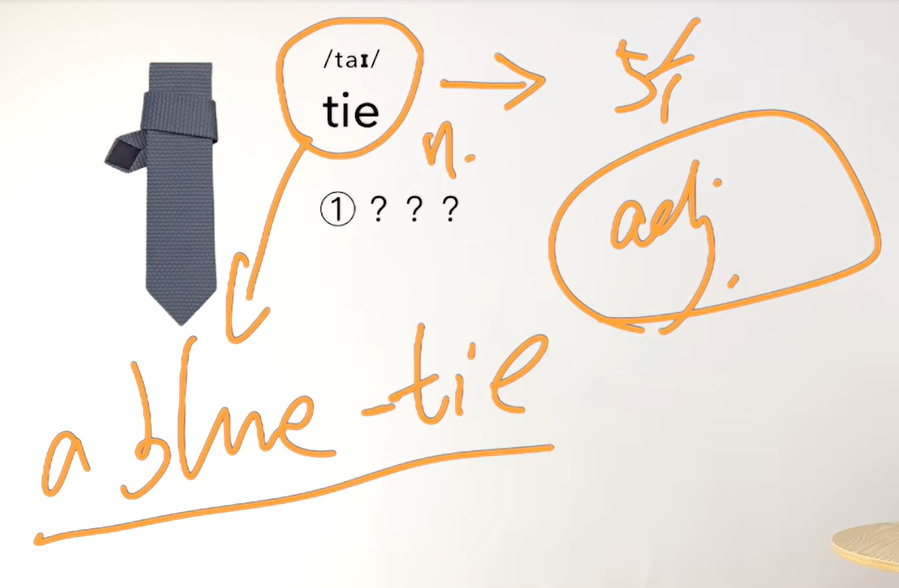 /taɪ/
tie
n.
① ? ? ?
adj.
a blue -tie